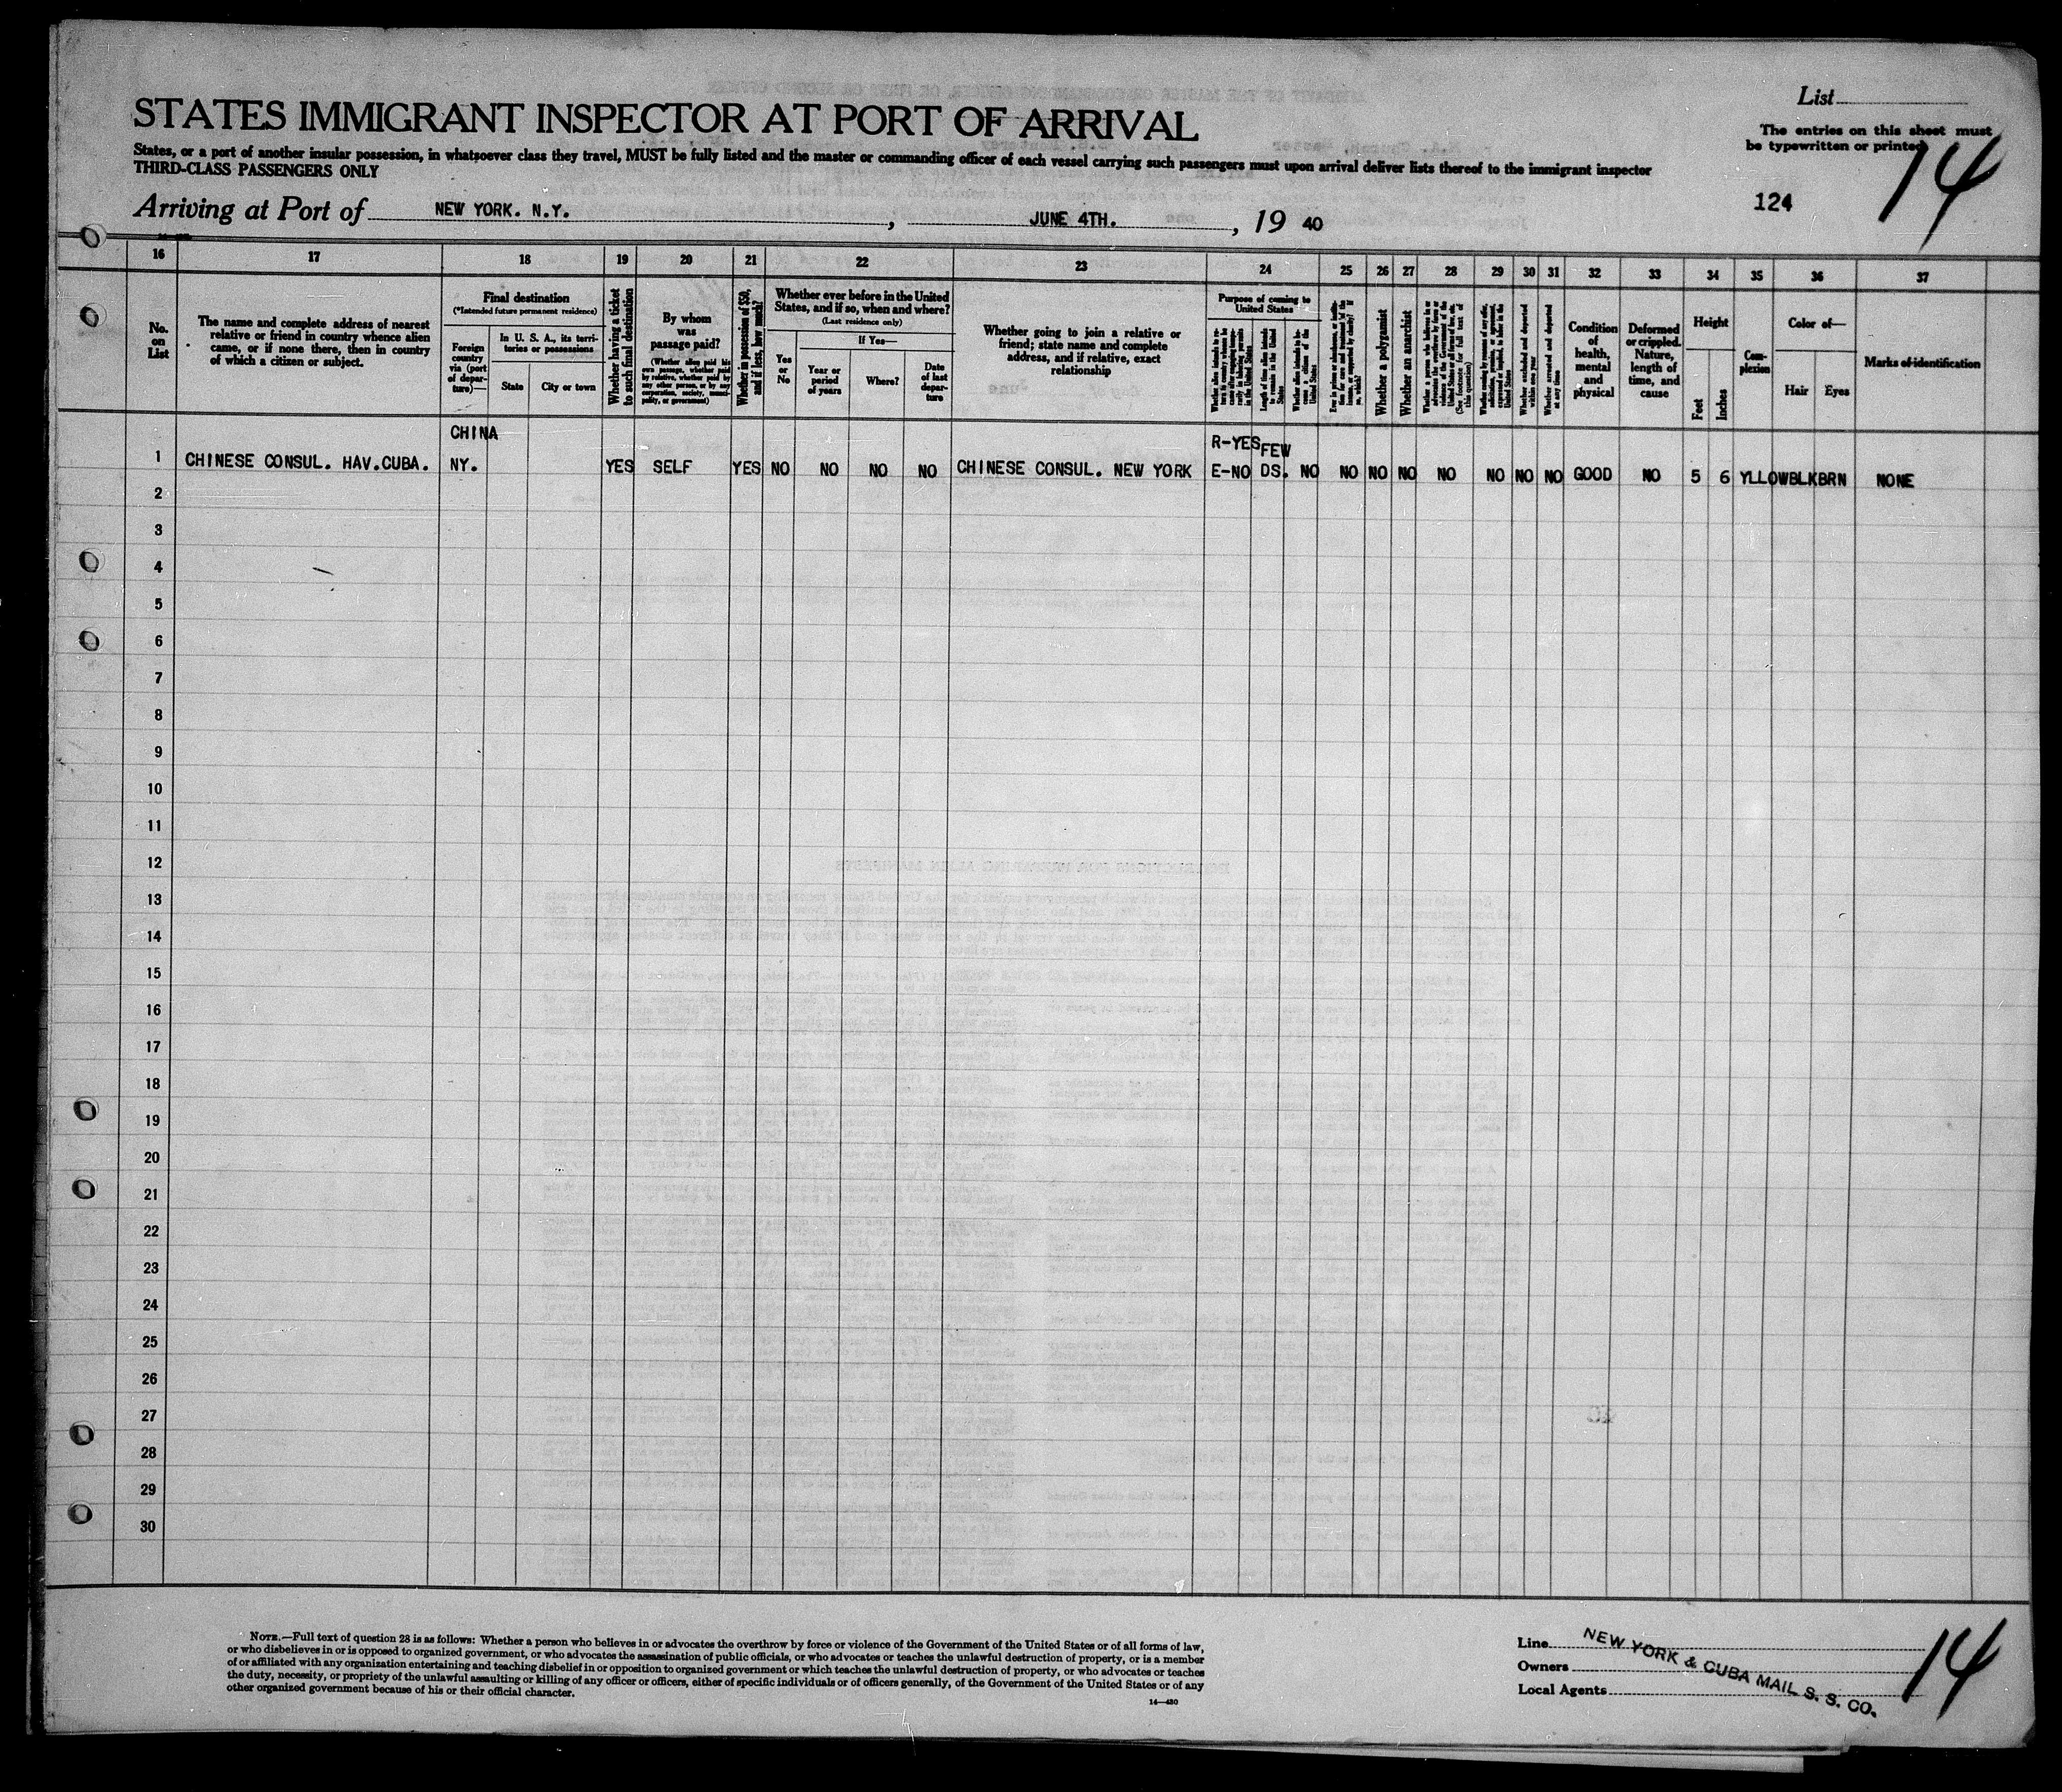 List
STATES IMMIGRANT INSPECTOR AT PORT OF ARRIVAL
The entries on this sheet must
be typewritten or printed
14
States, or a port of another insular possession, in whatsoever class they travel, MUST be fully listed and the master or commanding officer of each vessel carrying such passengers must upon arrival deliver lists thereof to the immigrant inspector
THIRD-CLASS PASSENGERS ONLY
124
Arriving at Port of NEW YORK. N.Y. , JUNE 4TH. , 19 40
16 17 18 19 20 21 22 23 24 25 26 27 28 29 30 31 32 33 34 35 36 37
No.
on
List
The name and complete address of nearest
relative or friend in country whence alien
came, or if none there, then in country
of which a citizen or subject.
Final destination
(*Intended future permanent residence)
Foreign
country
via (port
of depar-
ture)—
In U. S. A., its terri-
tories or possessions
State
City or town
Whether having a ticket
to such final destination
By whom
was
passage paid?
(Whether alien paid his
own passage, whether paid
by relative, whether paid by
any other person, or by any
corporation, society, munici-
pality, or government)
Whether in possession of $50,
and if less, how much?
Whether ever before in the United
States, and if so, when and where?
(Last residence only)
Yes
or
No
If Yes—
Year or
period
of years
Where?
Date
of last
depar-
ture
Whether going to join a relative or
friend; state name and complete
address, and if relative, exact
relationship
Purpose of coming to
United States
Length of time alien intends
to remain in the United
States
Whether alien intends to be-
come a citizen of the
United States
Whether a polygamist
Whether an anarchist
Whether excluded and deported
within one year
Whether arrested and deported
at any time
Condition
of
health,
mental
and
physical
Deformed
or crippled.
Nature,
length of
time, and
cause
Height
Feet
Inches
Com-
plexion
Color of—
Hair
Eyes
Marks of identification
CHINA
R-YES FEW
1 CHINESE CONSUL. HAV.CUBA. NY. YES SELF YES NO NO NO NO CHINESE CONSUL. NEW YORK E-NO DS. NO NO NO NO NO NO NO NO GOOD NO 5 6 YLLOWBLKBRN NONE
2
3
4
5
6
7
8
9
10
11
12
13
14
15
16
17
18
19
20
21
22
23
24
25
26
27
28
29
30
NOTE.—Full text of question 28 is as follows: Whether a person who believes in or advocates the overthrow by force or violence of the Government of the United States or of all forms of law,
or who disbelieves in or is opposed to organized government, or who advocates the assassination of public officials, or who advocates or teaches the unlawful destruction of property, or is a member
of or affiliated with any organization entertaining and teaching disbelief in or opposition to organized government or which teaches the unlawful destruction of property, or who advocates or teaches
the duty, necessity, or propriety of the unlawful assaulting or killing of any officer or officers, either of specific individuals or of officers generally, of the Government of the United States or of any
other organized government because of his or their official character.
14—480
Line
Owners
Local Agents
NEW YORK & CUBA MAIL S. S. CO.
14